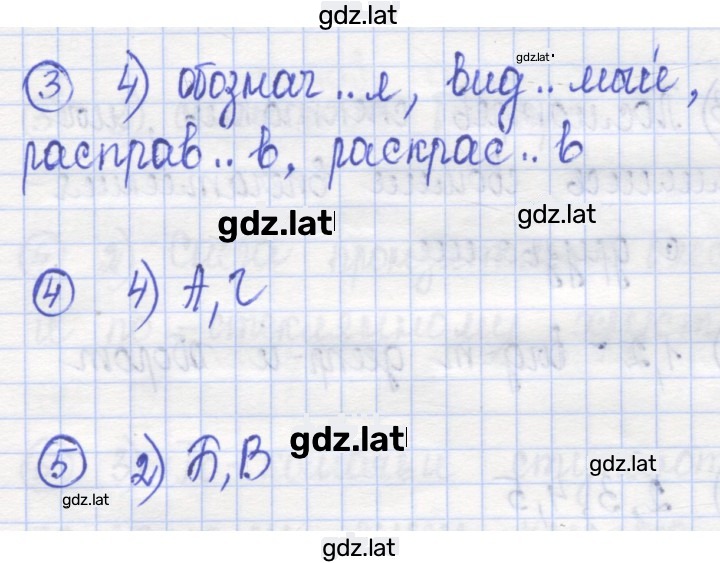 gdz.lat
gdz.lat
3 4) обознач..л, вид..мые,
расправ..в, раскрас..в
gdz.lat gdz.lat
4 4) А, Г
gdz.lat
5 2) Б, В gdz.lat
gdz.lat
gdz.lat